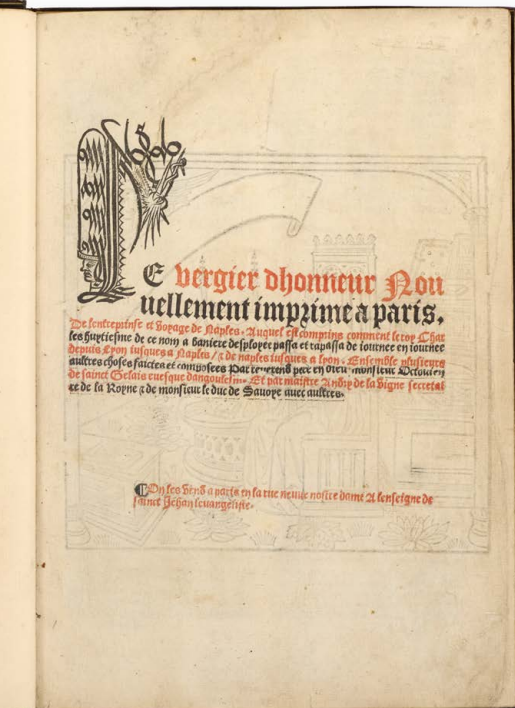 LE vergier dhonneur Nou
uellement imprime a paris.
De lentreprinse et voyage de Naples. Auquel est comprins comment le roy Char
les huytiesme de ce nom a baniere desployee passa et rapassa de iournee en iournee
depuis Lyon iusques a Naples / & de naples iusques a lyon. Ensemble plusieurs
aultres choses faictes et composees Par reuerend pere en dieu monsieur Octouien
de sainct Gelais euesque dangoulesme. Et par maistre Andry de la vigne secretai
re de la Royne & de monsieur le duc de Sauoye auec aultres.
¶ On les vend a paris en la rue neuue nostre dame A lenseigne de
sainct Jehan leuangeliste.